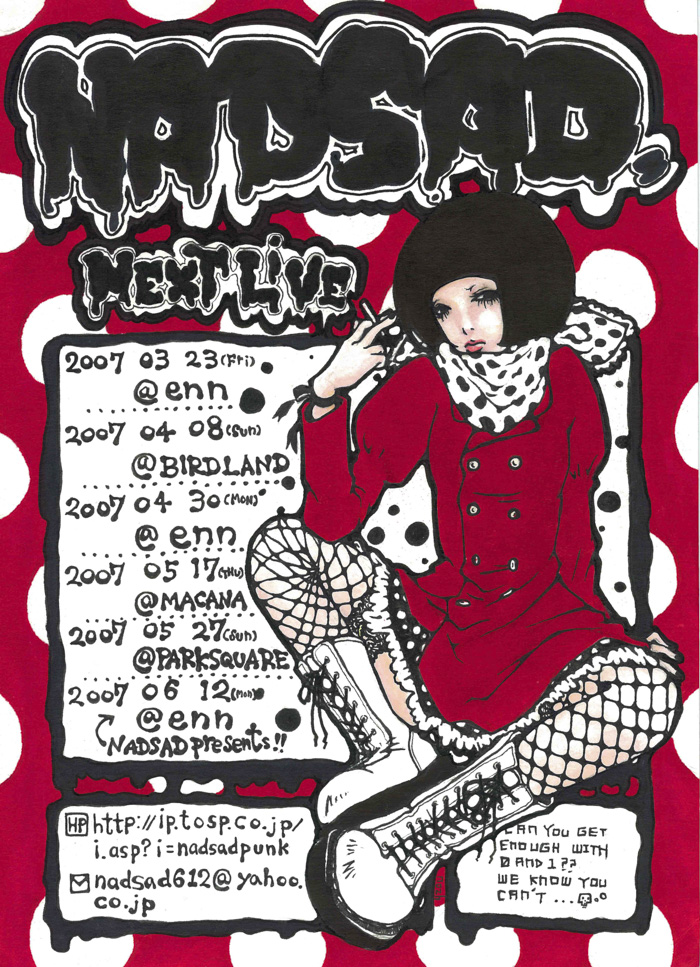 NADSAD.
NEXT LiVE
2007 03 23(Fri)
@enn
2007 04 08(SUN)
@BIRDLAND
2007 04 30(MON)
@enn
2007 05 17(THU)
@MACANA
2007 05 27(SUN)
@PARKSQUARE
2007 06 12(MON)
@enn
NADSAD presents!!
HP http://ip.tosp.co.jp/
i.asp?i=nadsadpunk
nadsad612@yahoo.
co.jp
CAN YOU GET
ENOUGH WITH
0 AND 1??
WE KNOW YOU
CAN'T...